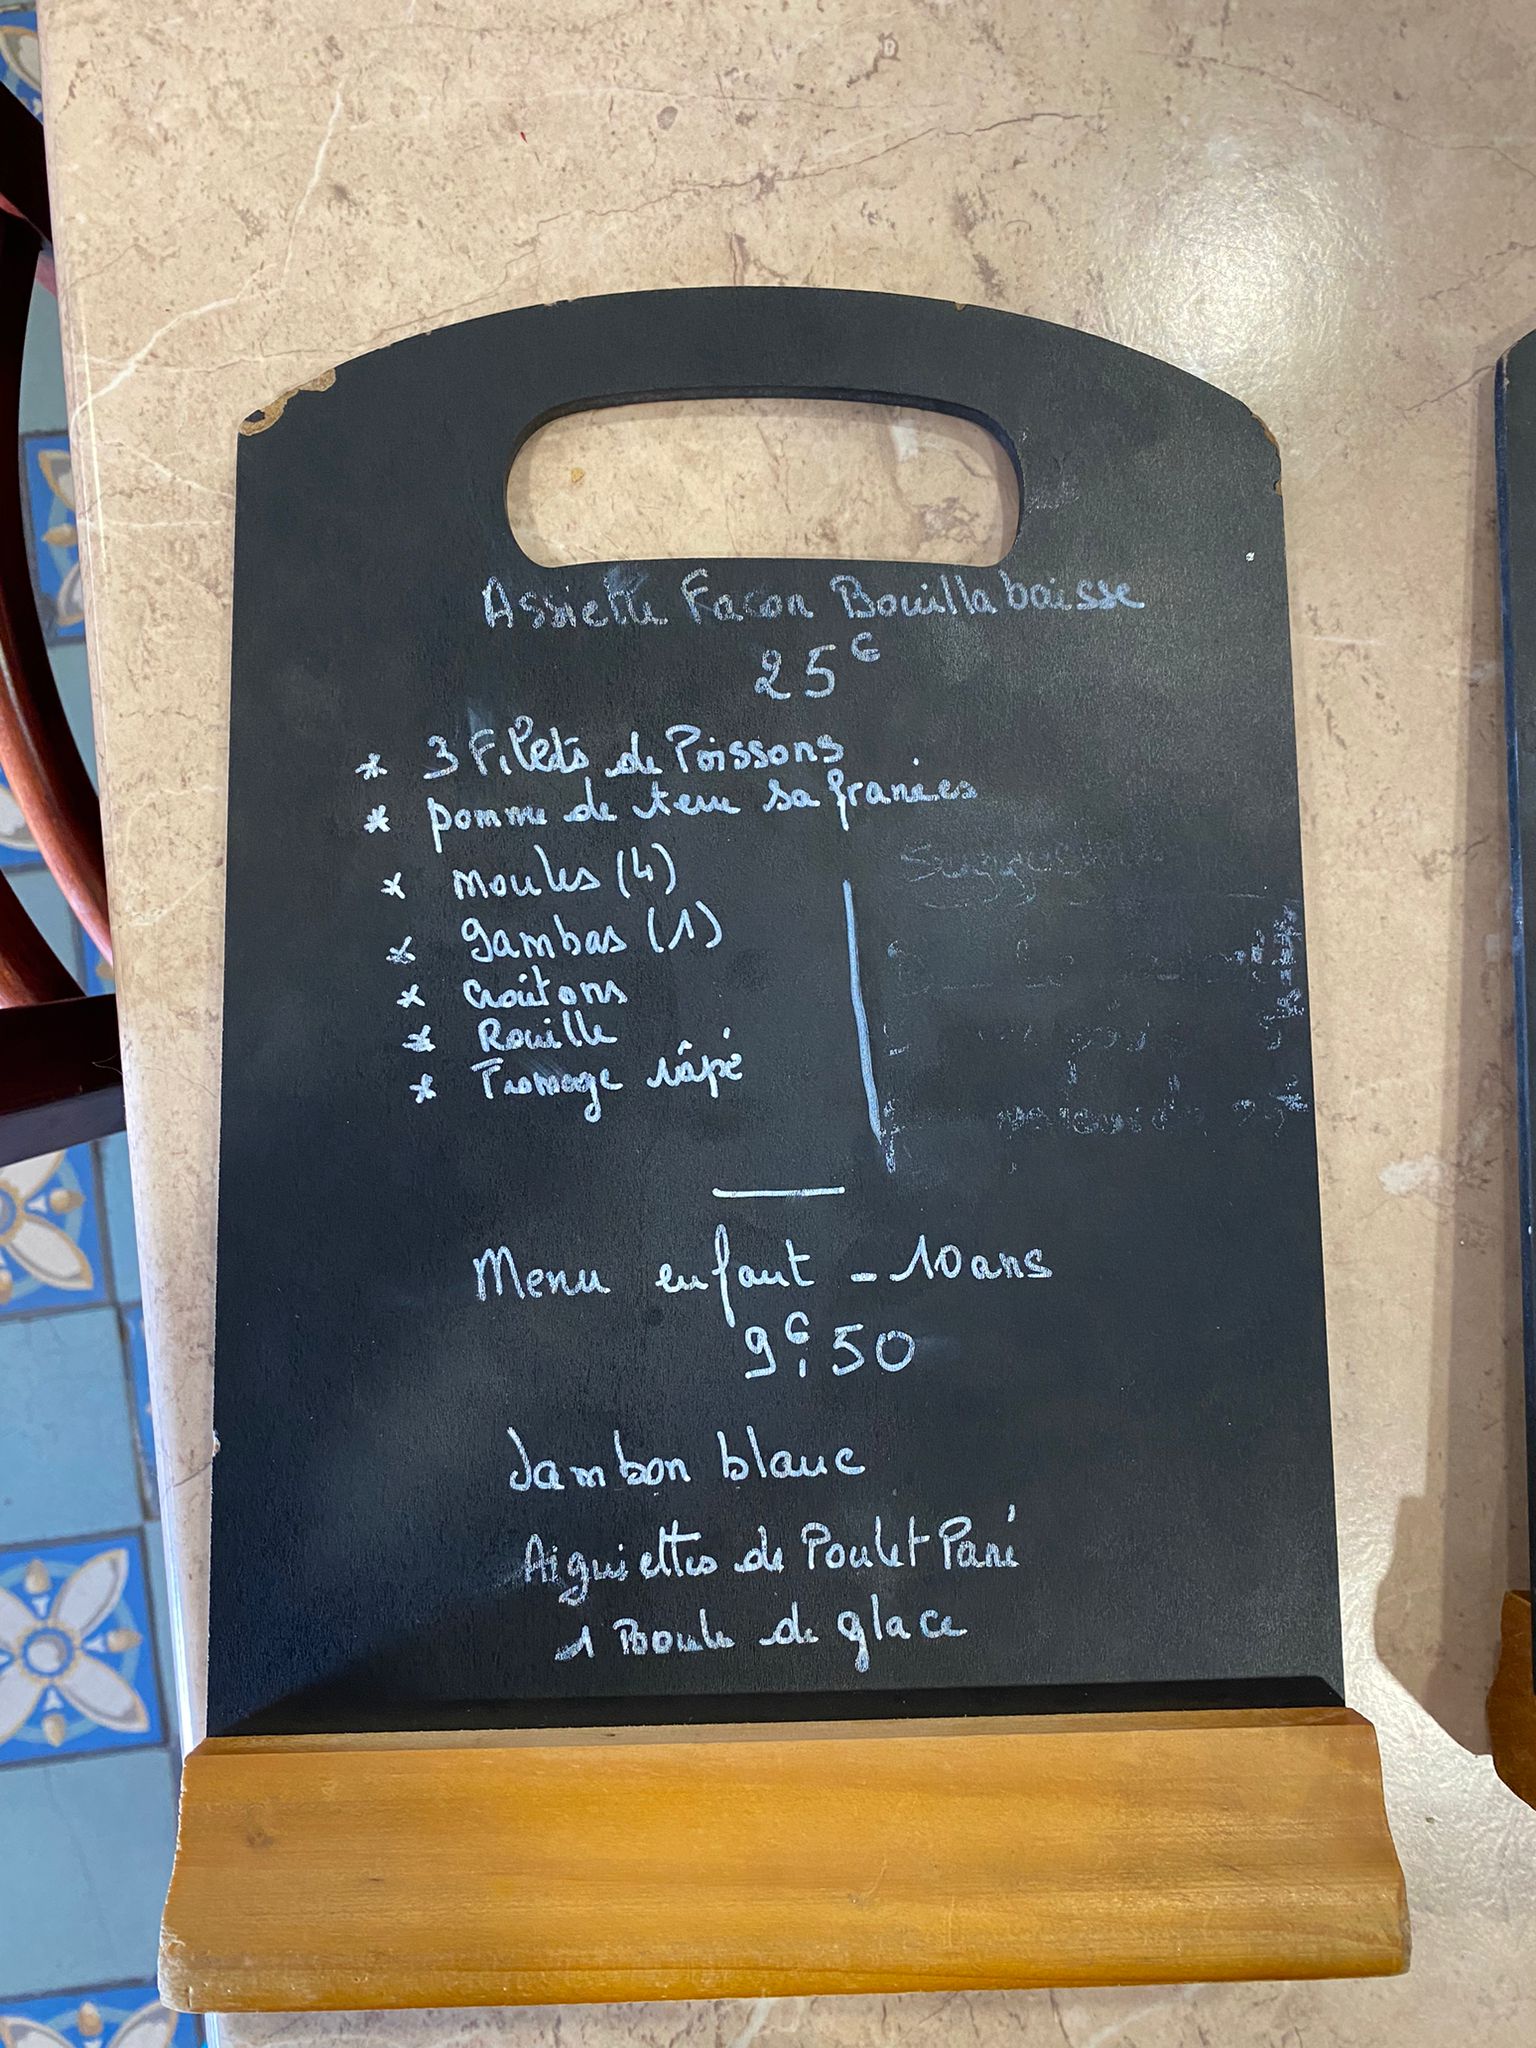 Assiette Facon Bouillabaisse
25€
* 3 Filets de Poissons
* pomme de terre safranées
* moules (4)
* gambas (1)
* Croûtons
* Rouille
* Fromage râpé
Menu enfant - 10 ans
9€,50
Jambon blanc
Aiguiettes de Poulet Pané
1 Boule de glace